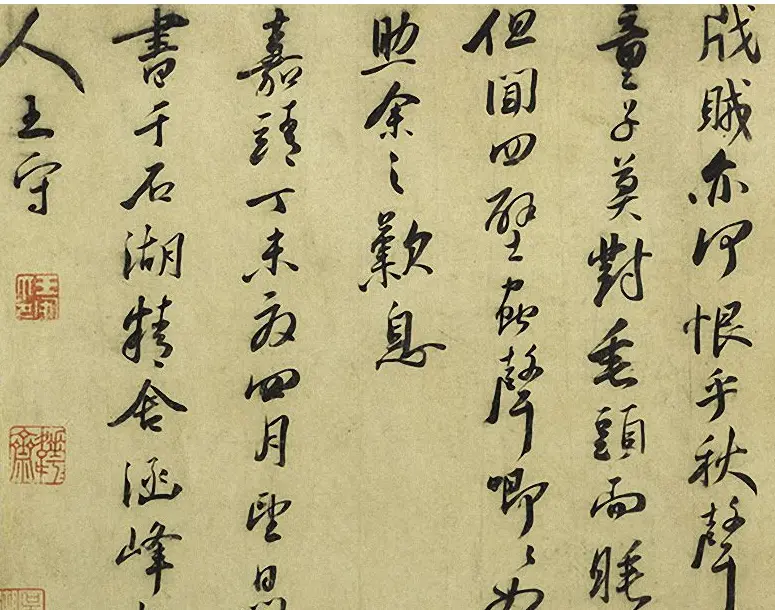 戕賊亦何恨乎秋聲
童子莫對垂頭而睡
但聞四壁蟲聲唧〻如
助余之歎息
嘉靖丁未夏四月望
書于石湖精舍涵峰
人王守